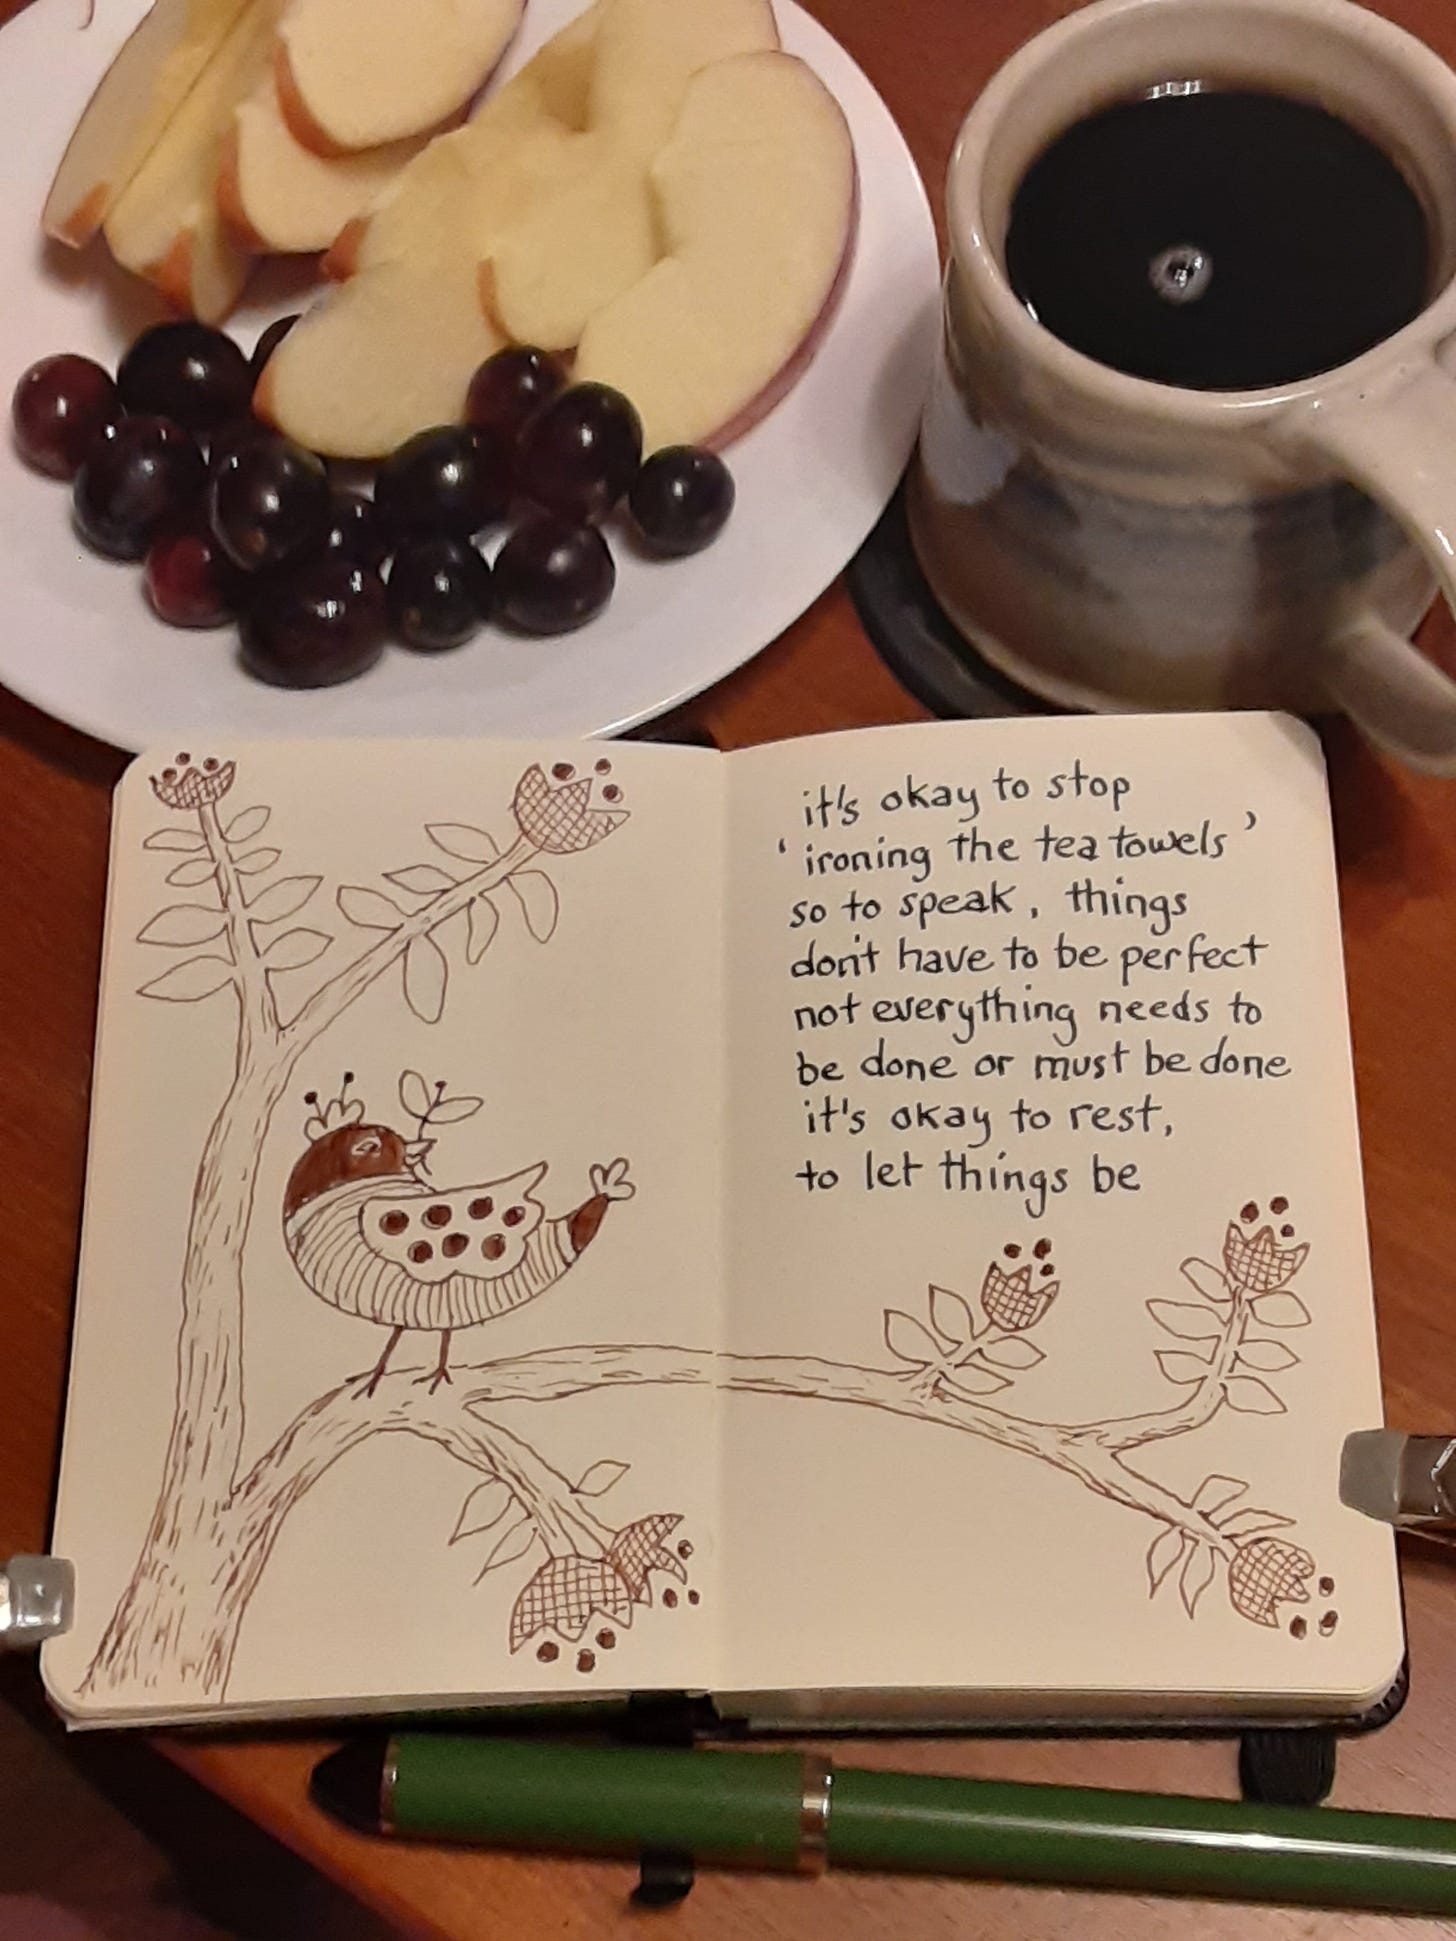 it's okay to stop
'ironing the tea towels'
so to speak, things
don't have to be perfect
not everything needs to
be done or must be done
it's okay to rest,
to let things be